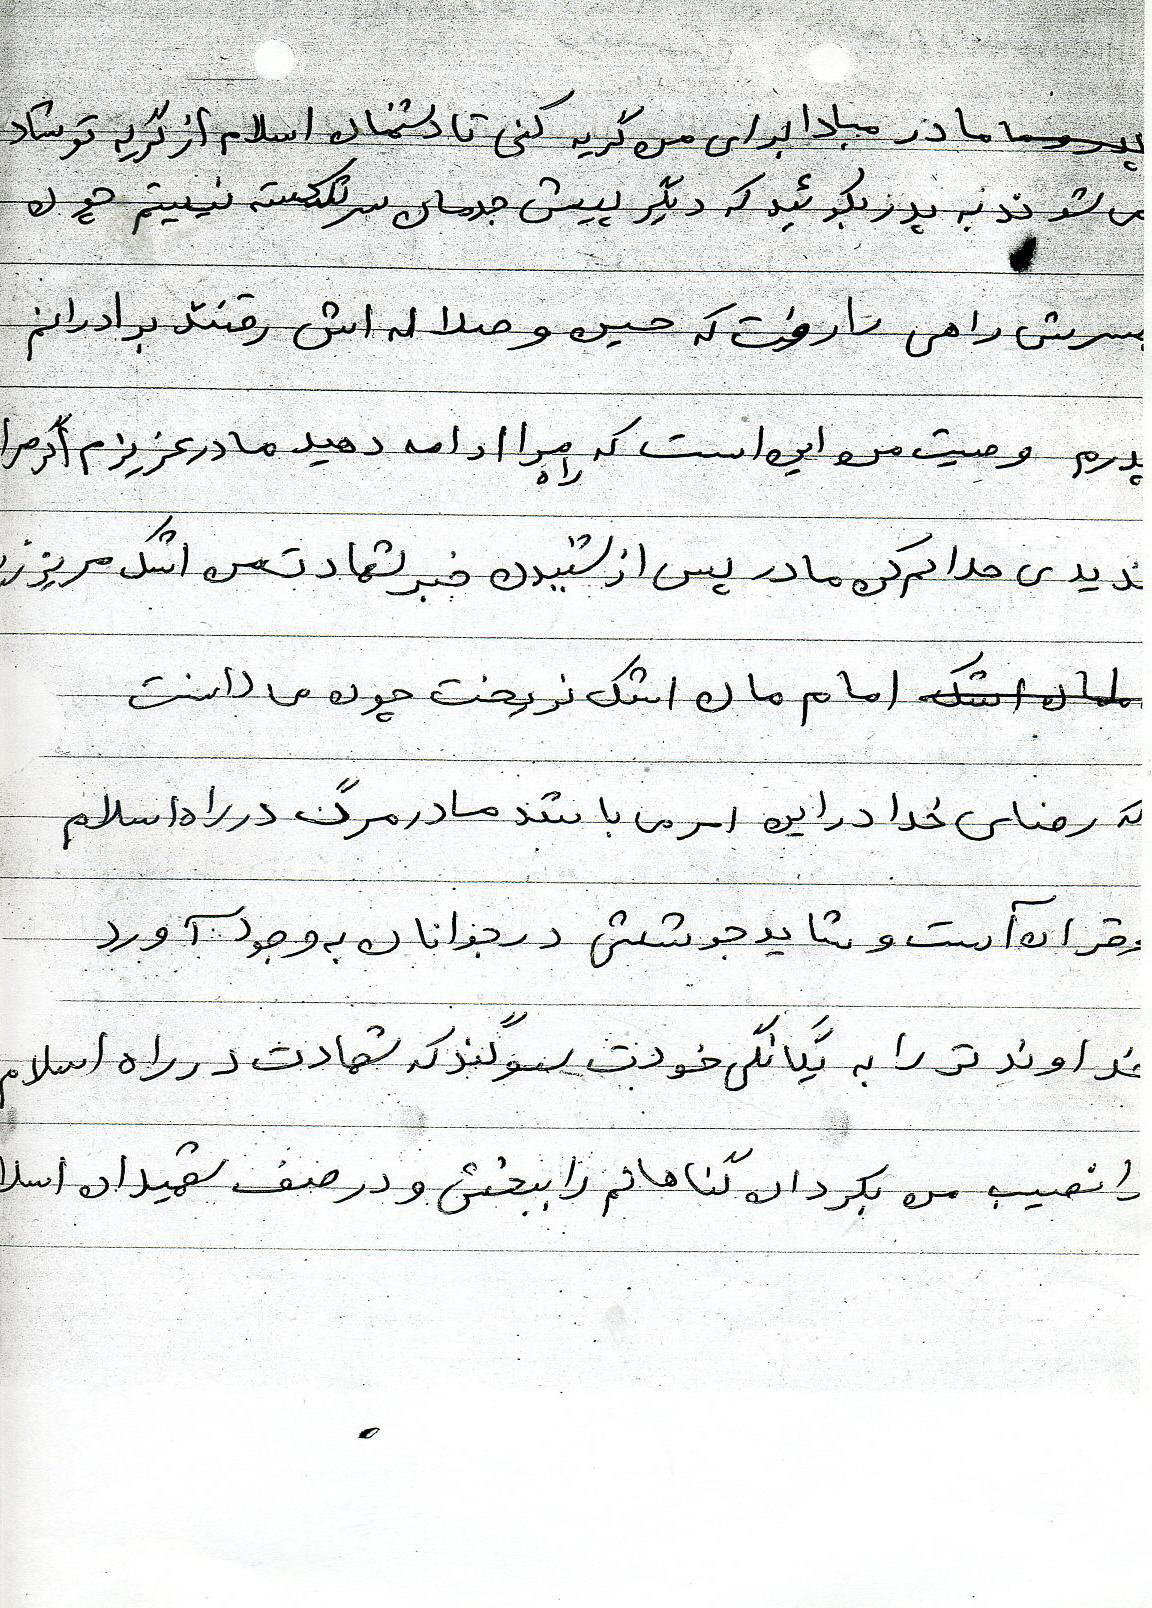 مادر مبادا برای من گریه کنی تا دشمنان اسلام از گریه تو شاد
می شوند به پدر بگوئید که دیگر پیش جدمان سرشکسته نیستم چون
پسرش راهی را رفت که حسین و صلاله اش رفتند برادرانم
پدرم وصیت من این است که راه مرا ادامه دهید مادر عزیزم اگر مرا
ندیدی حلالم کن مادر پس از شنیدن خبر شهادت من اشک مریز زیرا
امام مان اشک نریخت چون می دانست
که رضای خدا در این امر می باشد مادر مرگ در راه اسلام
و قران است و شاید جوششی در جوانان به وجود آورد
خداوند ترا به یگانگی خودت سوگند که شهادت در راه اسلام
را نصیب من بگردان گناهانم را ببخش و در صف شهیدان اسلا